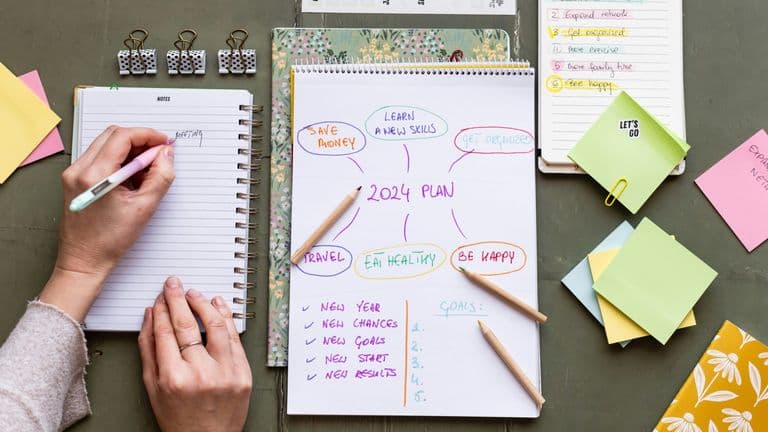 NOTES
MEETING
SAVE
MONEY
LEARN
A NEW SKILLS
GET ORGANIZED
2024 PLAN
TRAVEL
EAT HEALTHY
BE HAPPY
✓ NEW YEAR
✓ NEW CHANCES
✓ NEW GOALS
✓ NEW START
✓ NEW RESULTS
GOALS:
1.
2.
3.
4.
5.
2. Expand network
3. Get organized
4. More exercise
5. More family time
6. Be happy
LET'S
GO
EXPAN
NETW